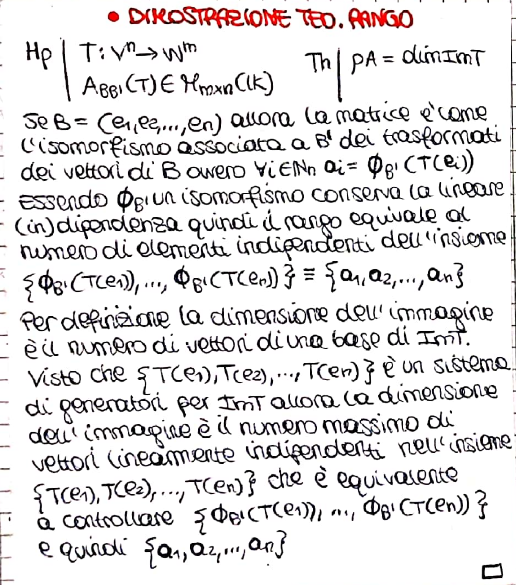 • DIMOSTRAZIONE TEO. RANGO
Hp | T: Vⁿ → Wᵐ
A_BB'(T) ∈ M_m×n(K)
Th | ρA = dim ImT
Se B = (e₁, e₂, ..., en) allora la matrice è come
l'isomorfismo associato a B' dei trasformati
dei vettori di B ovvero ∀i∈Nn ai = Φ_B'(T(ei))
Essendo Φ_B' un isomorfismo conserva la lineare
(in)dipendenza quindi il rango equivale al
numero di elementi indipendenti dell'insieme
{Φ_B'(T(e₁)), ..., Φ_B'(T(en))} ≡ {a₁, a₂, ..., an}
Per definizione la dimensione dell'immagine
è il numero di vettori di una base di ImT.
Visto che {T(e₁), T(e₂), ..., T(en)} è un sistema
di generatori per ImT allora la dimensione
dell'immagine è il numero massimo di
vettori linearmente indipendenti nell'insieme
{T(e₁), T(e₂), ..., T(en)} che è equivalente
a controllare {Φ_B'(T(e₁)), ..., Φ_B'(T(en))}
e quindi {a₁, a₂, ..., an}